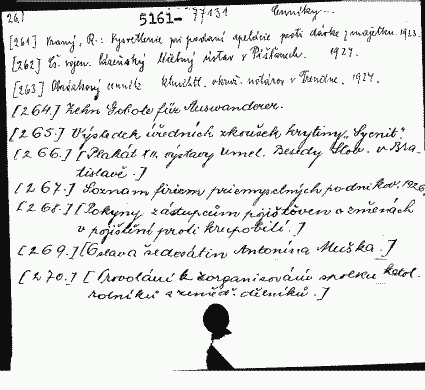 26.) 5161- 37131 Cenníky...
[261] Kraný, R.: Vysvetlenie pri podaní apelácie proti dávke z majetku. 1923.
[262] Čs. vojen. kúpeľný liečebný ústav v Pišťanoch. 1927.
[263] Obrázkový cenník v Trenčíne. 1927.
[264.] Zehn Gebote für Auswanderer.
[265.] Výsledek úředních zkoušek krytiny "Syenit".
[266.] [Plakát XII. výstavy Umel. Besedy Slov. v Bra-
tislavě.]
[267.] Soznam firiem priemyselných podnikov, 1926.
[268.] [Pokyny zástupcům pojišťoven o změnách
v pojištění proti krupobití.]
[269.] [Oslava šedesátin Antonína Muška.]
[270.] [Provolání k zorganisování spolku katol.
rolníků a zeměd. dělníků.]